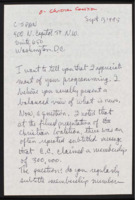 Sept 13, 1995
C-SPAN
400 N. Capitol St. N.W.
Suite 650
Washington, D.C.
I want to tell you that I appreciate
most of your programming. I
believe you usually present a
balanced view of what is news.
Now, a question. I noted that
at the filmed presentation of the
Christian Coalition, there was an
often repeated subtitled message
that C.C. claimed a membership
of 300,000.
The question: do you regularly
subtitle membership number